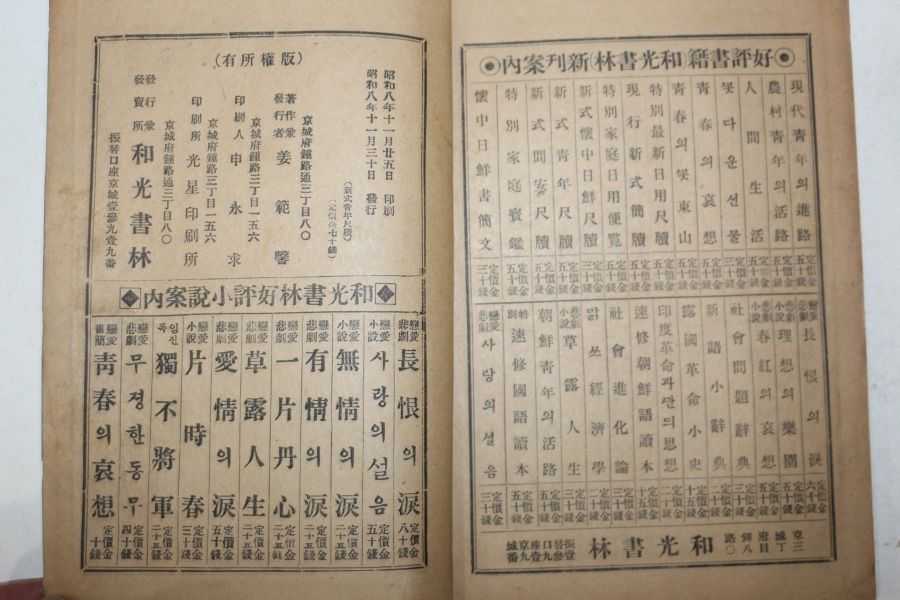 好評書籍(和光書林)新刊案內
現代青年의進路 定價金五十錢
農村青年의活路 定價金五十錢
人間生活 定價金五十錢
꼿다운선물 定價金三十錢
青春의哀想 定價金五十錢
青春의꼿東山 定價金五十錢
特別最新式日用尺牘 定價金五十錢
現行新式簡牘 定價金五十錢
特別家庭日用便覧 定價金五十錢
新式懷中日鮮尺牘 定價金
新式青年尺牘 定價金
新式問安尺牘 定價金五十錢
特別家庭寶鑑 定價金五十錢
懷中日鮮書簡文 定價金三十錢
戀愛悲劇 長恨의淚 定價金六十錢
小說 理想의樂園 定價金五十錢
悲劇小說 春紅의哀想 定價金五十錢
社會問題辭典 定價金三十錢
新語小辭典 定價金二十錢
露國革命小史 定價金
印度革命과깐듸思想 定價金
速修朝鮮語讀本 定價金
社會進化論 定價金三十錢
맑쓰經濟學 定價金二十錢
悲劇小說 草露人生 定價金
朝鮮青年의活路 定價金五十錢
特別 速修國語讀本 定價金五十錢
戀愛悲劇 사랑의설음 定價金三十錢
京城府鍾路三丁目八〇
和光書林
振替口座京城壹參九壹九番
(版權所有)
昭和八年十一月廿五日 印刷
昭和八年十一月三十日 發行
(新式青年尺牘)
(定價金七十錢)
京城府鍾路通三丁目八〇
著作兼發行者 姜範馨
京城府鍾路三丁目一五六
印刷人 申永求
京城府鍾路三丁目一五六
印刷所 光星印刷所
京城府鍾路通三丁目八〇
發行兼發賣所 和光書林
振替口座京城壹參九壹九番
和光書林好評小說案內
戀愛悲劇 長恨의淚 定價金八十錢
戀愛小說 사랑의설음 定價金五十錢
戀愛小說 無情의淚 定價金二十五錢
戀愛悲劇 有情의淚 定價金二十五錢
戀愛悲劇 一片丹心 定價金二十五錢
戀愛悲劇 草露人生 定價金二十五錢
戀愛悲劇 愛情의淚 定價金五十錢
戀愛小說 片時春 定價金三十錢
임진록 獨不將軍 定價金二十五錢
戀愛悲劇 무정한동무 定價金四十錢
戀愛書簡 青春의哀想 定價金五十錢